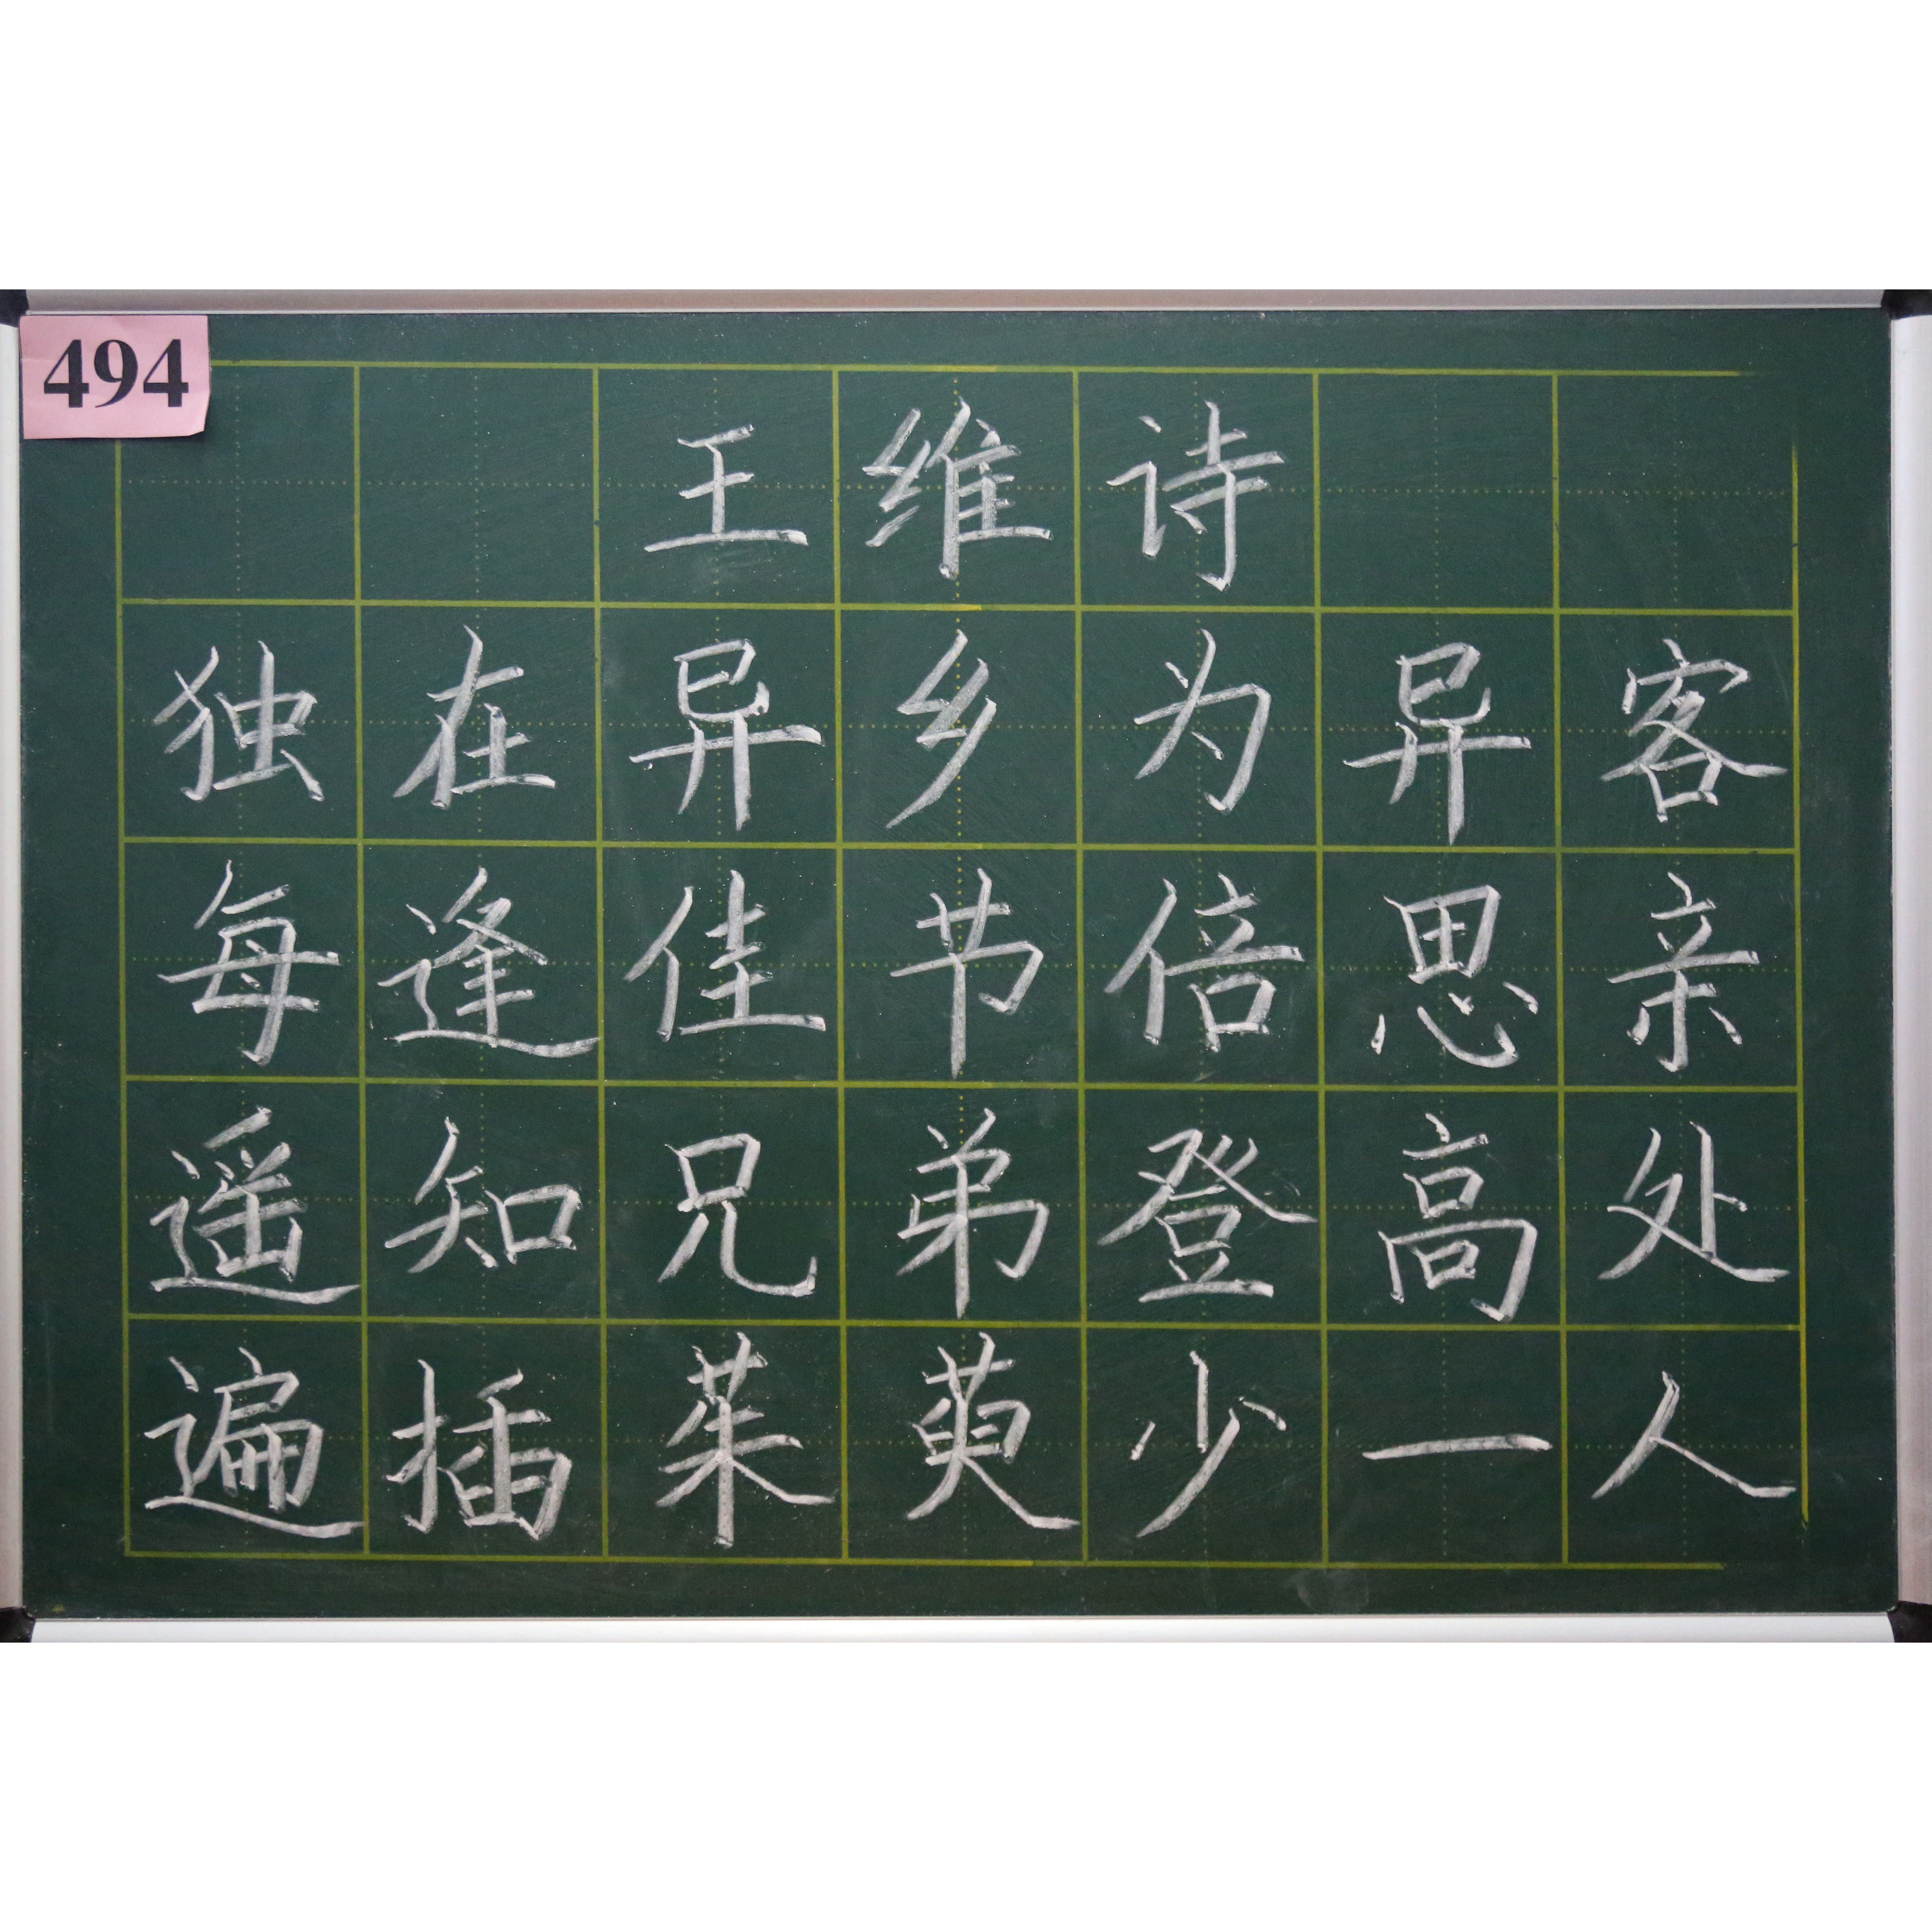 494
王维诗
独在异乡为异客
每逢佳节倍思亲
遥知兄弟登高处
遍插茱萸少一人